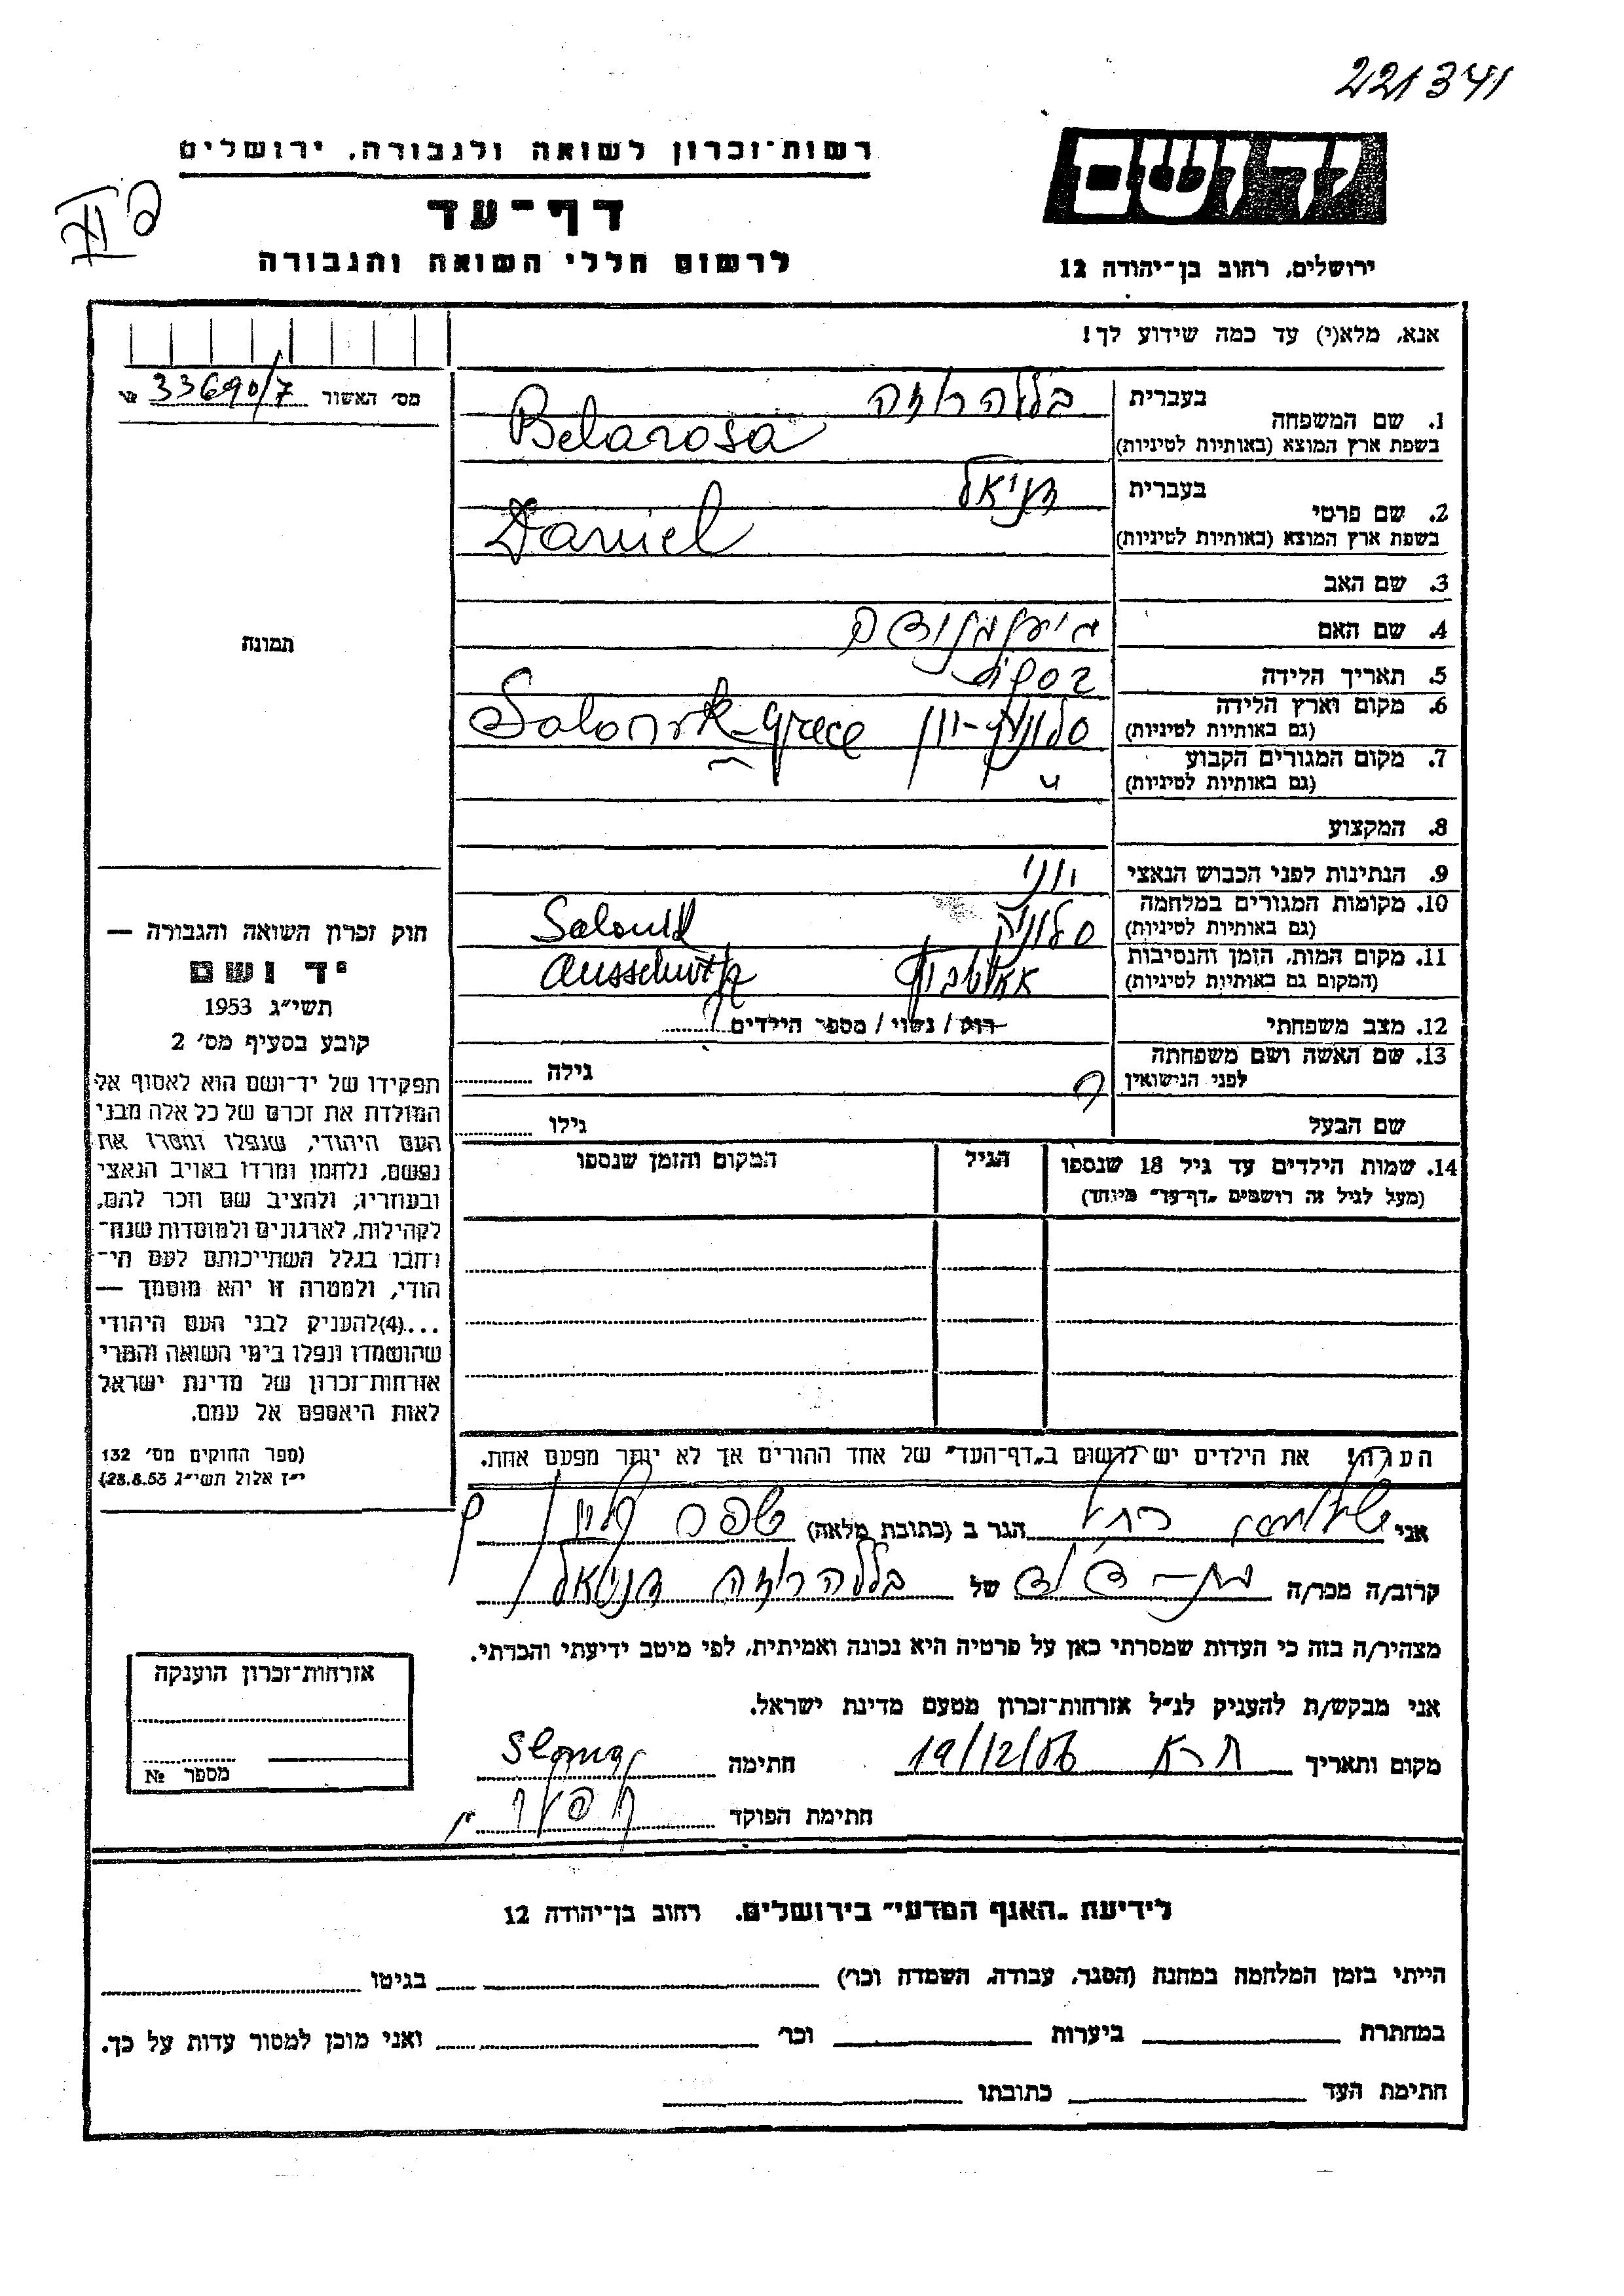 221341
רשות־זכרון לשואה ולגבורה, ירושלים
דף־עד
לרשום חללי השואה והגבורה
ידושם
ירושלים, רחוב בן־יהודה 12
אנא, מלא(י) עד כמה שידוע לך!
מס׳ האשור 33690/7 №
תמונה
1. שם המשפחה
בעברית
בשפת ארץ המוצא (באותיות לטיניות)
Belarosa
2. שם פרטי
בעברית דניאל
בשפת ארץ המוצא (באותיות לטיניות)
Daniel
3. שם האב
4. שם האם
5. תאריך הלידה
6. מקום וארץ הלידה
(גם באותיות לטיניות)
סלוניקי-יון Grece
7. מקום המגורים הקבוע
(גם באותיות לטיניות)
"
8. המקצוע
9. הנתינות לפני הכבוש הנאצי יווני
10. מקומות המגורים במלחמה
(גם באותיות לטיניות)
11. מקום המות, הזמן והנסיבות
(המקום גם באותיות לטיניות)
Ausschwitz
12. מצב משפחתי רוק / נשוי / מספר הילדים
13. שם האשה ושם משפחתה
לפני הנישואין
גילה
שם הבעל גילו
14. שמות הילדים עד גיל 18 שנספו
(מעל לגיל זה רושמים „דף־עד" מיוחד)
הגיל
המקום והזמן שנספו
הערה! את הילדים יש לרשום ב„דף־העד" של אחד ההורים אך לא יותר מפעם אחת.
חוק זכרון השואה והגבורה —
יד ושם
תשי״ג 1953
קובע בסעיף מס׳ 2
תפקידו של יד־ושם הוא לאסוף אל
המולדת את זכרם של כל אלה מבני
העם היהודי, שנפלו ומסרו את
נפשם, נלחמו ומרדו באויב הנאצי
ובעוזריו, ולהציב שם וזכר להם,
לקהילות, לארגונים ולמוסדות שנח־
רחבו בגלל השתייכותם לעם הי־
הודי, ולמטרה זו יהא מוסמך —
...(4)להעניק לבני העם היהודי
שהושמדו ונפלו בימי השואה והמרי
אזרחות־זכרון של מדינת ישראל
לאות היאספם אל עמם.
(ספר החוקים מס׳ 132
י״ז אלול תשי״ג 28.8.53)
אני רחל הגר ב (כתובת מלאה)
קרוב/ה מכר/ה של דניאל
מצהיר/ה בזה כי העדות שמסרתי כאן על פרטיה היא נכונה ואמיתית, לפי מיטב ידיעתי והכרתי.
אני מבקש/ת להעניק לנ״ל אזרחות־זכרון מטעם מדינת ישראל.
מקום ותאריך ת״א 19/12/56 חתימה
חתימת הפוקד
אזרחות־זכרון הוענקה
מספר №
לידיעת „האגף המדעי" בירושלים. רחוב בן־יהודה 12
הייתי בזמן המלחמה במחנה (הסגר, עבודה, השמדה וכר׳) בגיטו
במחתרת ביערות וכר׳ ואני מוכן למסור עדות על כך.
חתימת העד כתובתו